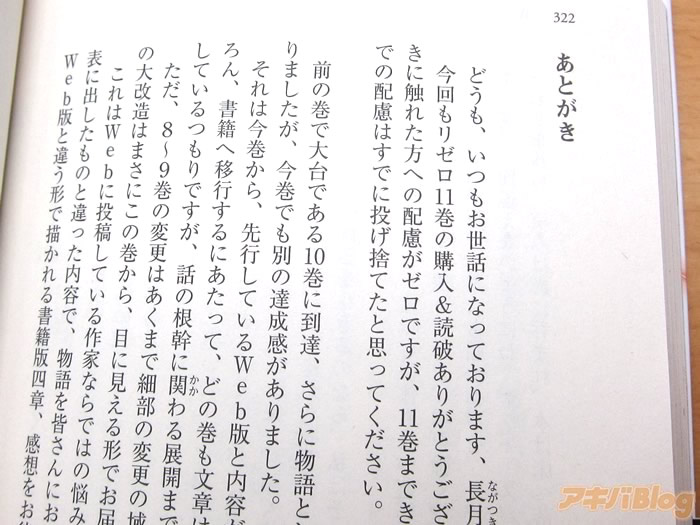 322
あとがき
どうも、いつもお世話になっております、長月
ながつき
今回もリゼロ11巻の購入＆読破ありがとうござ
きに触れた方への配慮がゼロですが、11巻まできて
での配慮はすでに投げ捨てたと思ってください。
前の巻で大台である10巻に到達、さらに物語と
りましたが、今巻でも別の達成感がありました。
それは今巻から、先行しているWeb版と内容が
ろん、書籍へ移行するにあたって、どの巻も文章は
しているつもりですが、話の根幹に関わる展開まで
かか
ただ、8～9巻の変更はあくまで細部の変更の域
の大改造はまさにこの巻から、目に見える形でお届
これはWebに投稿している作家ならではの悩み
表に出したものと違った内容で、物語を皆さんにお
Web版と違う形で描かれる書籍版四章、感想をお
アキバBlog